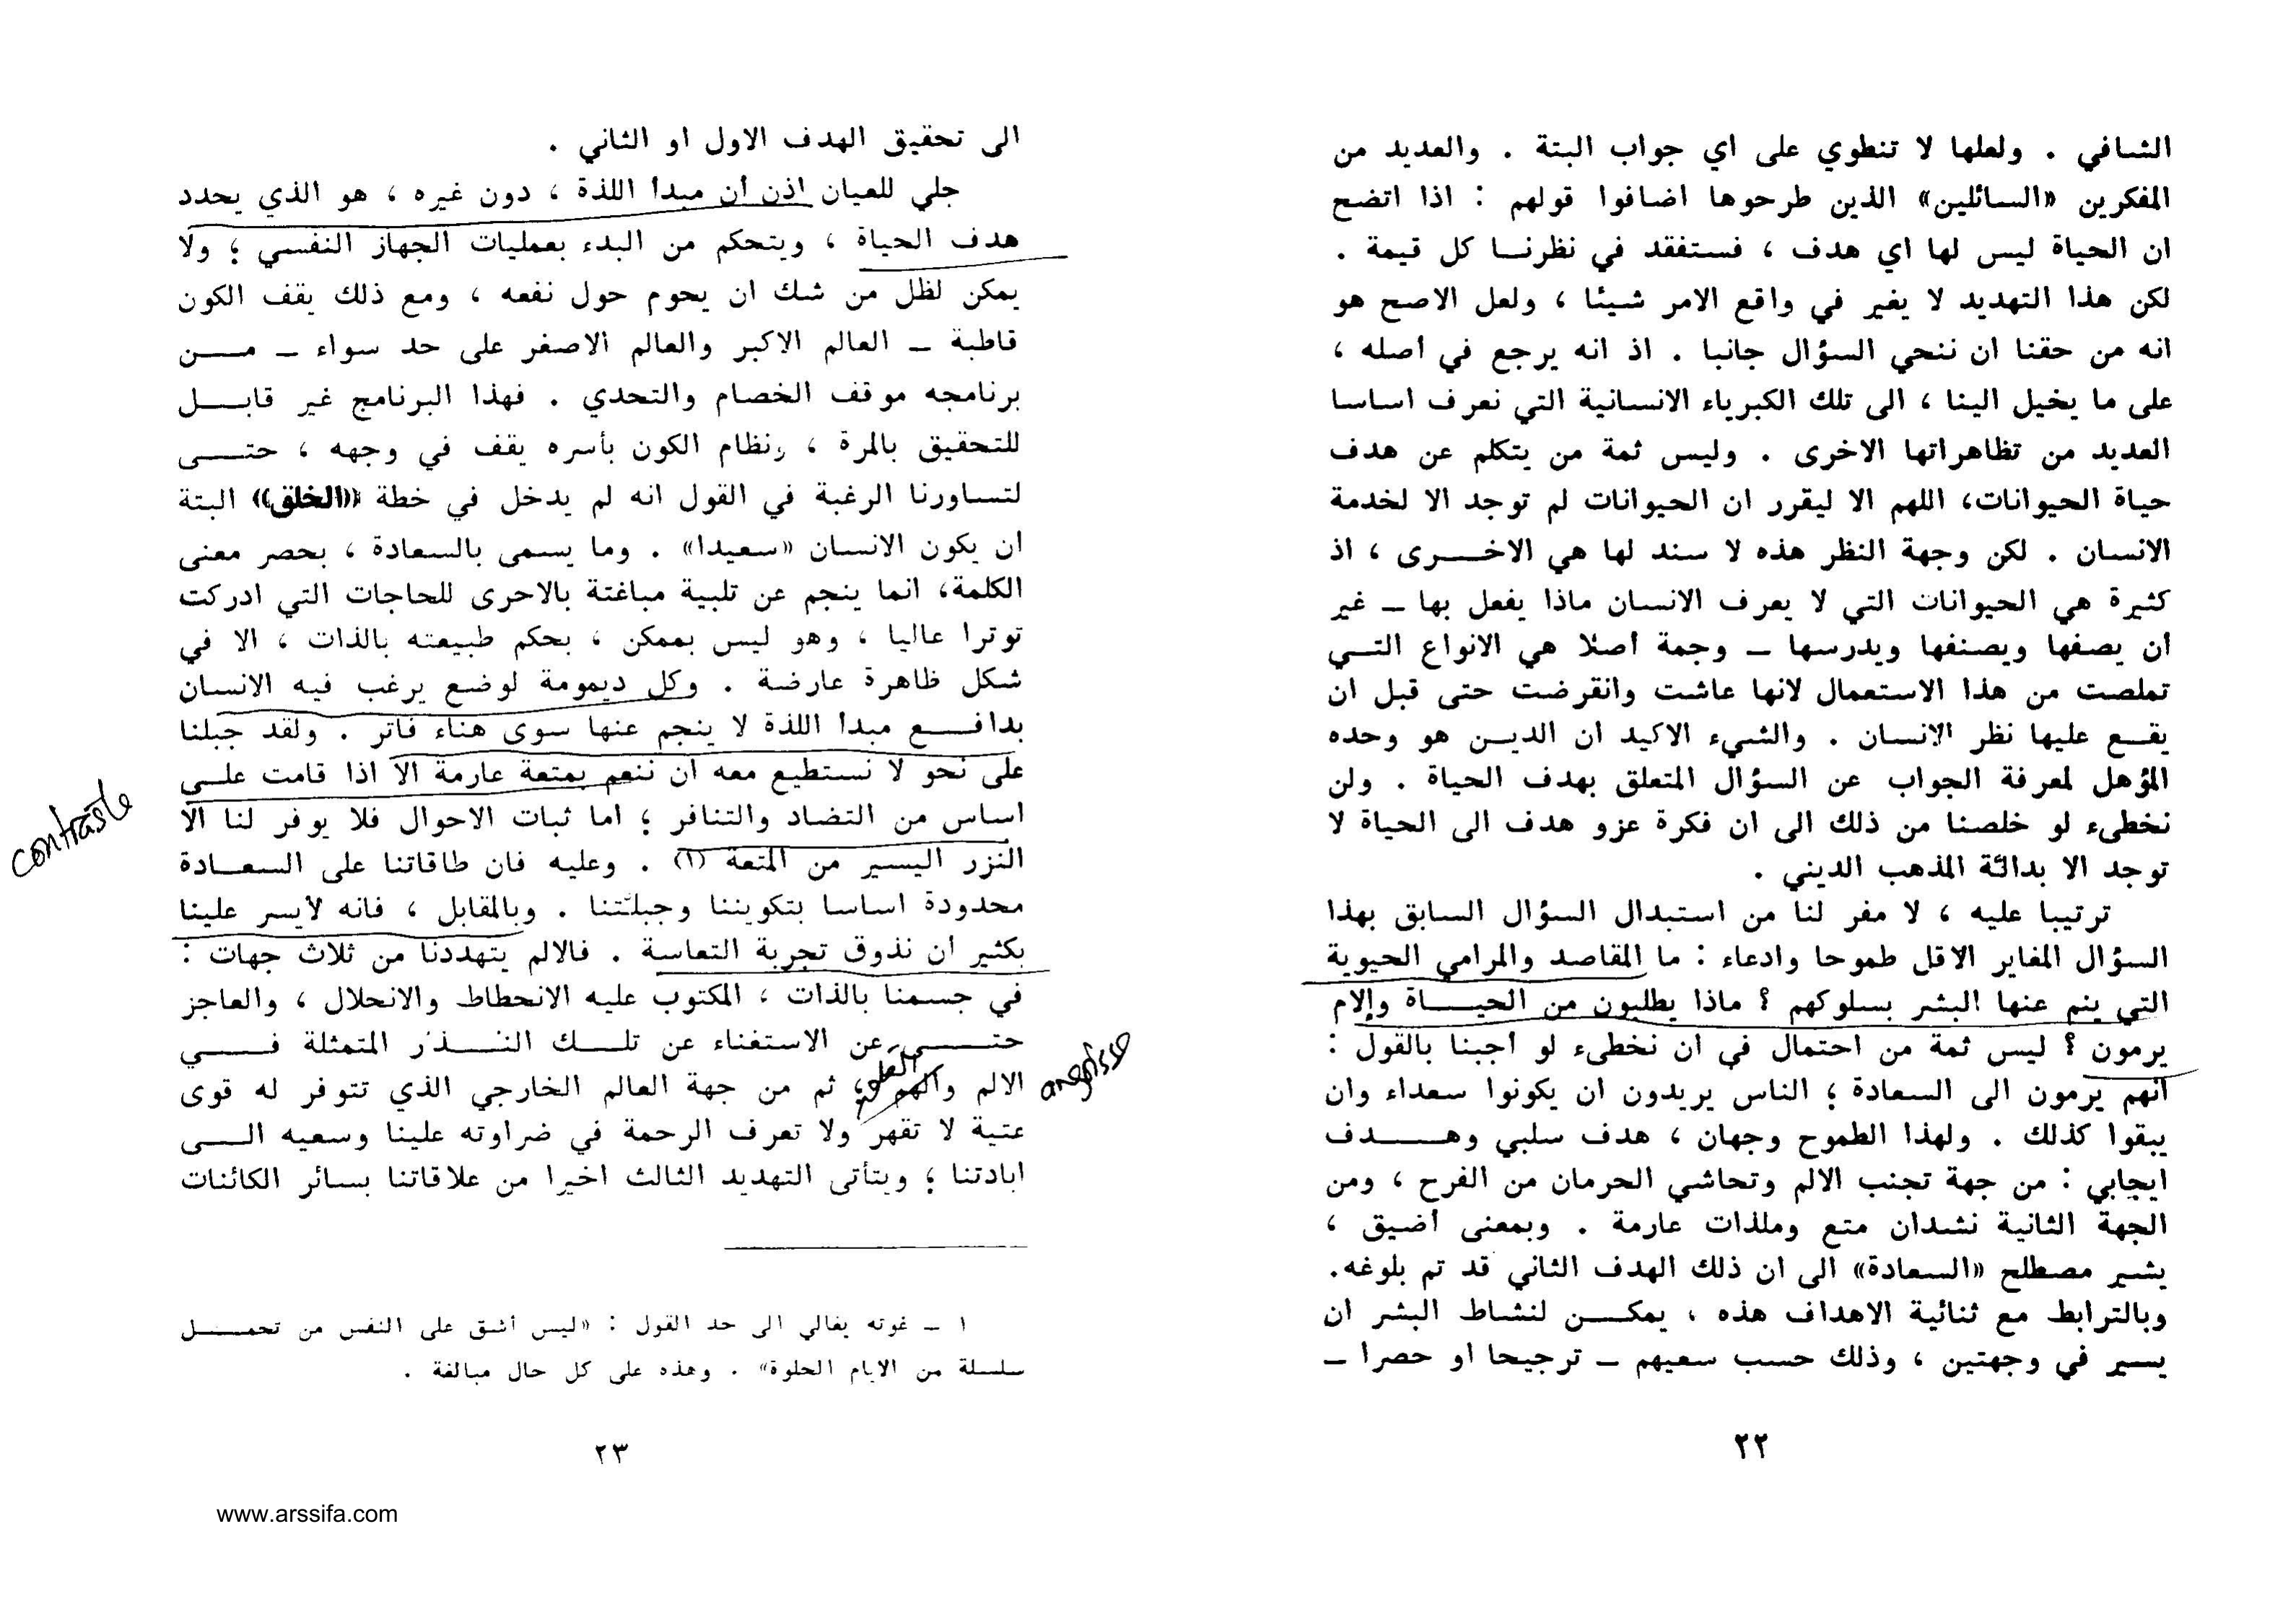 الشافي . ولعلها لا تنطوي على اي جواب البتة . والعديد من
المفكرين «السائلين» الذين طرحوها اضافوا قولهم : اذا اتضح
ان الحياة ليس لها اي هدف ، فستفقد في نظرنـا كل قيمة .
لكن هذا التهديد لا يغير في واقع الامر شيئا ، ولعل الاصح هو
انه من حقنا ان ننحي السؤال جانبا . اذ انه يرجع في أصله ،
على ما يخيل الينا ، الى تلك الكبرياء الانسانية التي نعرف اساسا
العديد من تظاهراتها الاخرى . وليس ثمة من يتكلم عن هدف
حياة الحيوانات، اللهم الا ليقرر ان الحيوانات لم توجد الا لخدمة
الانسان . لكن وجهة النظر هذه لا سند لها هي الاخـــرى ، اذ
كثيرة هي الحيوانات التي لا يعرف الانسان ماذا يفعل بها – غير
أن يصفها ويصنفها ويدرسها – وجمة أصلا هي الانواع التــي
تملصت من هذا الاستعمال لانها عاشت وانقرضت حتى قبل ان
يقـع عليها نظر الإنسان . والشيء الاكيد ان الديـن هو وحده
المؤهل لمعرفة الجواب عن السؤال المتعلق بهدف الحياة . ولن
نخطىء لو خلصنا من ذلك الى ان فكرة عزو هدف الى الحياة لا
توجد الا بدالّة المذهب الديني .
ترتيبا عليه ، لا مفر لنا من استبدال السؤال السابق بهذا
السؤال المغاير الاقل طموحا وادعاء : ما المقاصد والمرامي الحيوية
التي ينم عنها البشر بسلوكهم ؟ ماذا يطلبون من الحيـــاة وإلام
يرمون ؟ ليس ثمة من احتمال في ان نخطىء لو أجبنا بالقول :
انهم يرمون الى السعادة ؛ الناس يريدون ان يكونوا سعداء وان
يبقوا كذلك . ولهذا الطموح وجهان ، هدف سلبي وهــــدف
ايجابي : من جهة تجنب الالم وتحاشي الحرمان من الفرح ، ومن
الجهة الثانية نشدان متع وملذات عارمة . وبمعنى أضيق ،
يشـير مصطلح «السعادة» الى ان ذلك الهدف الثاني قد تم بلوغه.
وبالترابط مع ثنائية الاهداف هذه ، يمكـــن لنشاط البشر ان
يسـير في وجهتين ، وذلك حسب سعيهم – ترجيحا او حصرا –
٢٢
الى تحقيق الهدف الاول او الثاني .
جلي للعيان اذن أن مبدأ اللذة ، دون غيره ، هو الذي يحدد
هدف الحياة ، ويتحكم من البدء بعمليات الجهاز النفسي ؛ ولا
يمكن لظل من شك ان يحوم حول نفعه ، ومع ذلك يقف الكون
قاطبة – العالم الاكبر والعالم الاصغر على حد سواء – مــن
برنامجه موقف الخصام والتحدي . فهذا البرنامج غير قابـــل
للتحقيق بالمرة ، ونظام الكون بأسره يقف في وجهه ، حتـــى
لتساورنا الرغبة في القول انه لم يدخل في خطة «الخلق» البتة
ان يكون الانسان «سعيدا» . وما يسمى بالسعادة ، بحصر معنى
الكلمة، انما ينجم عن تلبية مباغتة بالاحرى للحاجات التي ادركت
توترا عاليا ، وهو ليس بممكن ، بحكم طبيعته بالذات ، الا في
شكل ظاهرة عارضة . وكل ديمومة لوضع يرغب فيه الانسان
بدافـــع مبدأ اللذة لا ينجم عنها سوى هناء فاتر . ولقد جبلنا
على نحو لا نستطيع معه أن ننعم بمتعة عارمة الا اذا قامت علـي
اساس من التضاد والتنافر ؛ اما ثبات الاحوال فلا يوفر لنا الا
contraste
النزر اليسير من المتعة (١) . وعليه فان طاقاتنا على السعــادة
محدودة اساسا بتكويننا وجبلّتنا . وبالمقابل ، فانه لأيسر علينا
بكثير أن نذوق تجربة التعاسة . فالالم يتهددنا من ثلاث جهات :
في جسمنا بالذات ، المكتوب عليه الانحطاط والانحلال ، والعاجز
حتـــى عن الاستغناء عن تلــك النـــذر المتمثلة فـــي
angoisse
الالم والهم ؛ ثم من جهة العالم الخارجي الذي تتوفر له قوى
عتية لا تقهر ولا تعرف الرحمة في ضراوته علينا وسعيه الـــى
ابادتنا ؛ ويتأتى التهديد الثالث اخيرا من علاقاتنا بسائر الكائنات
١ – غوته يغالي الى حد القول : «ليس أشق على النفس من تحمـــل
سلسلة من الايام الحلوة» . وهذه على كل حال مبالغة .
٢٣
www.arssifa.com